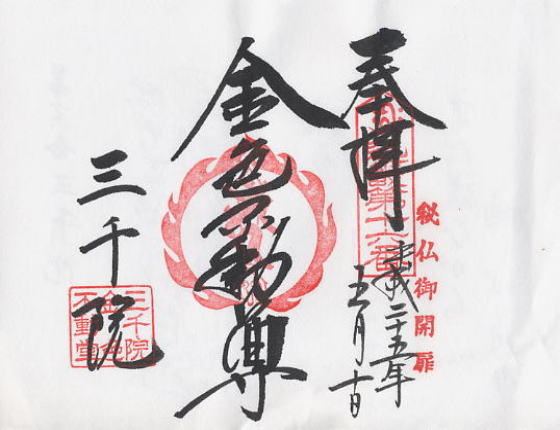 奉拝
秘仏御開扉
平成二十五年
五月十日
金色不動尊
三千院
三千院
金色
不動堂